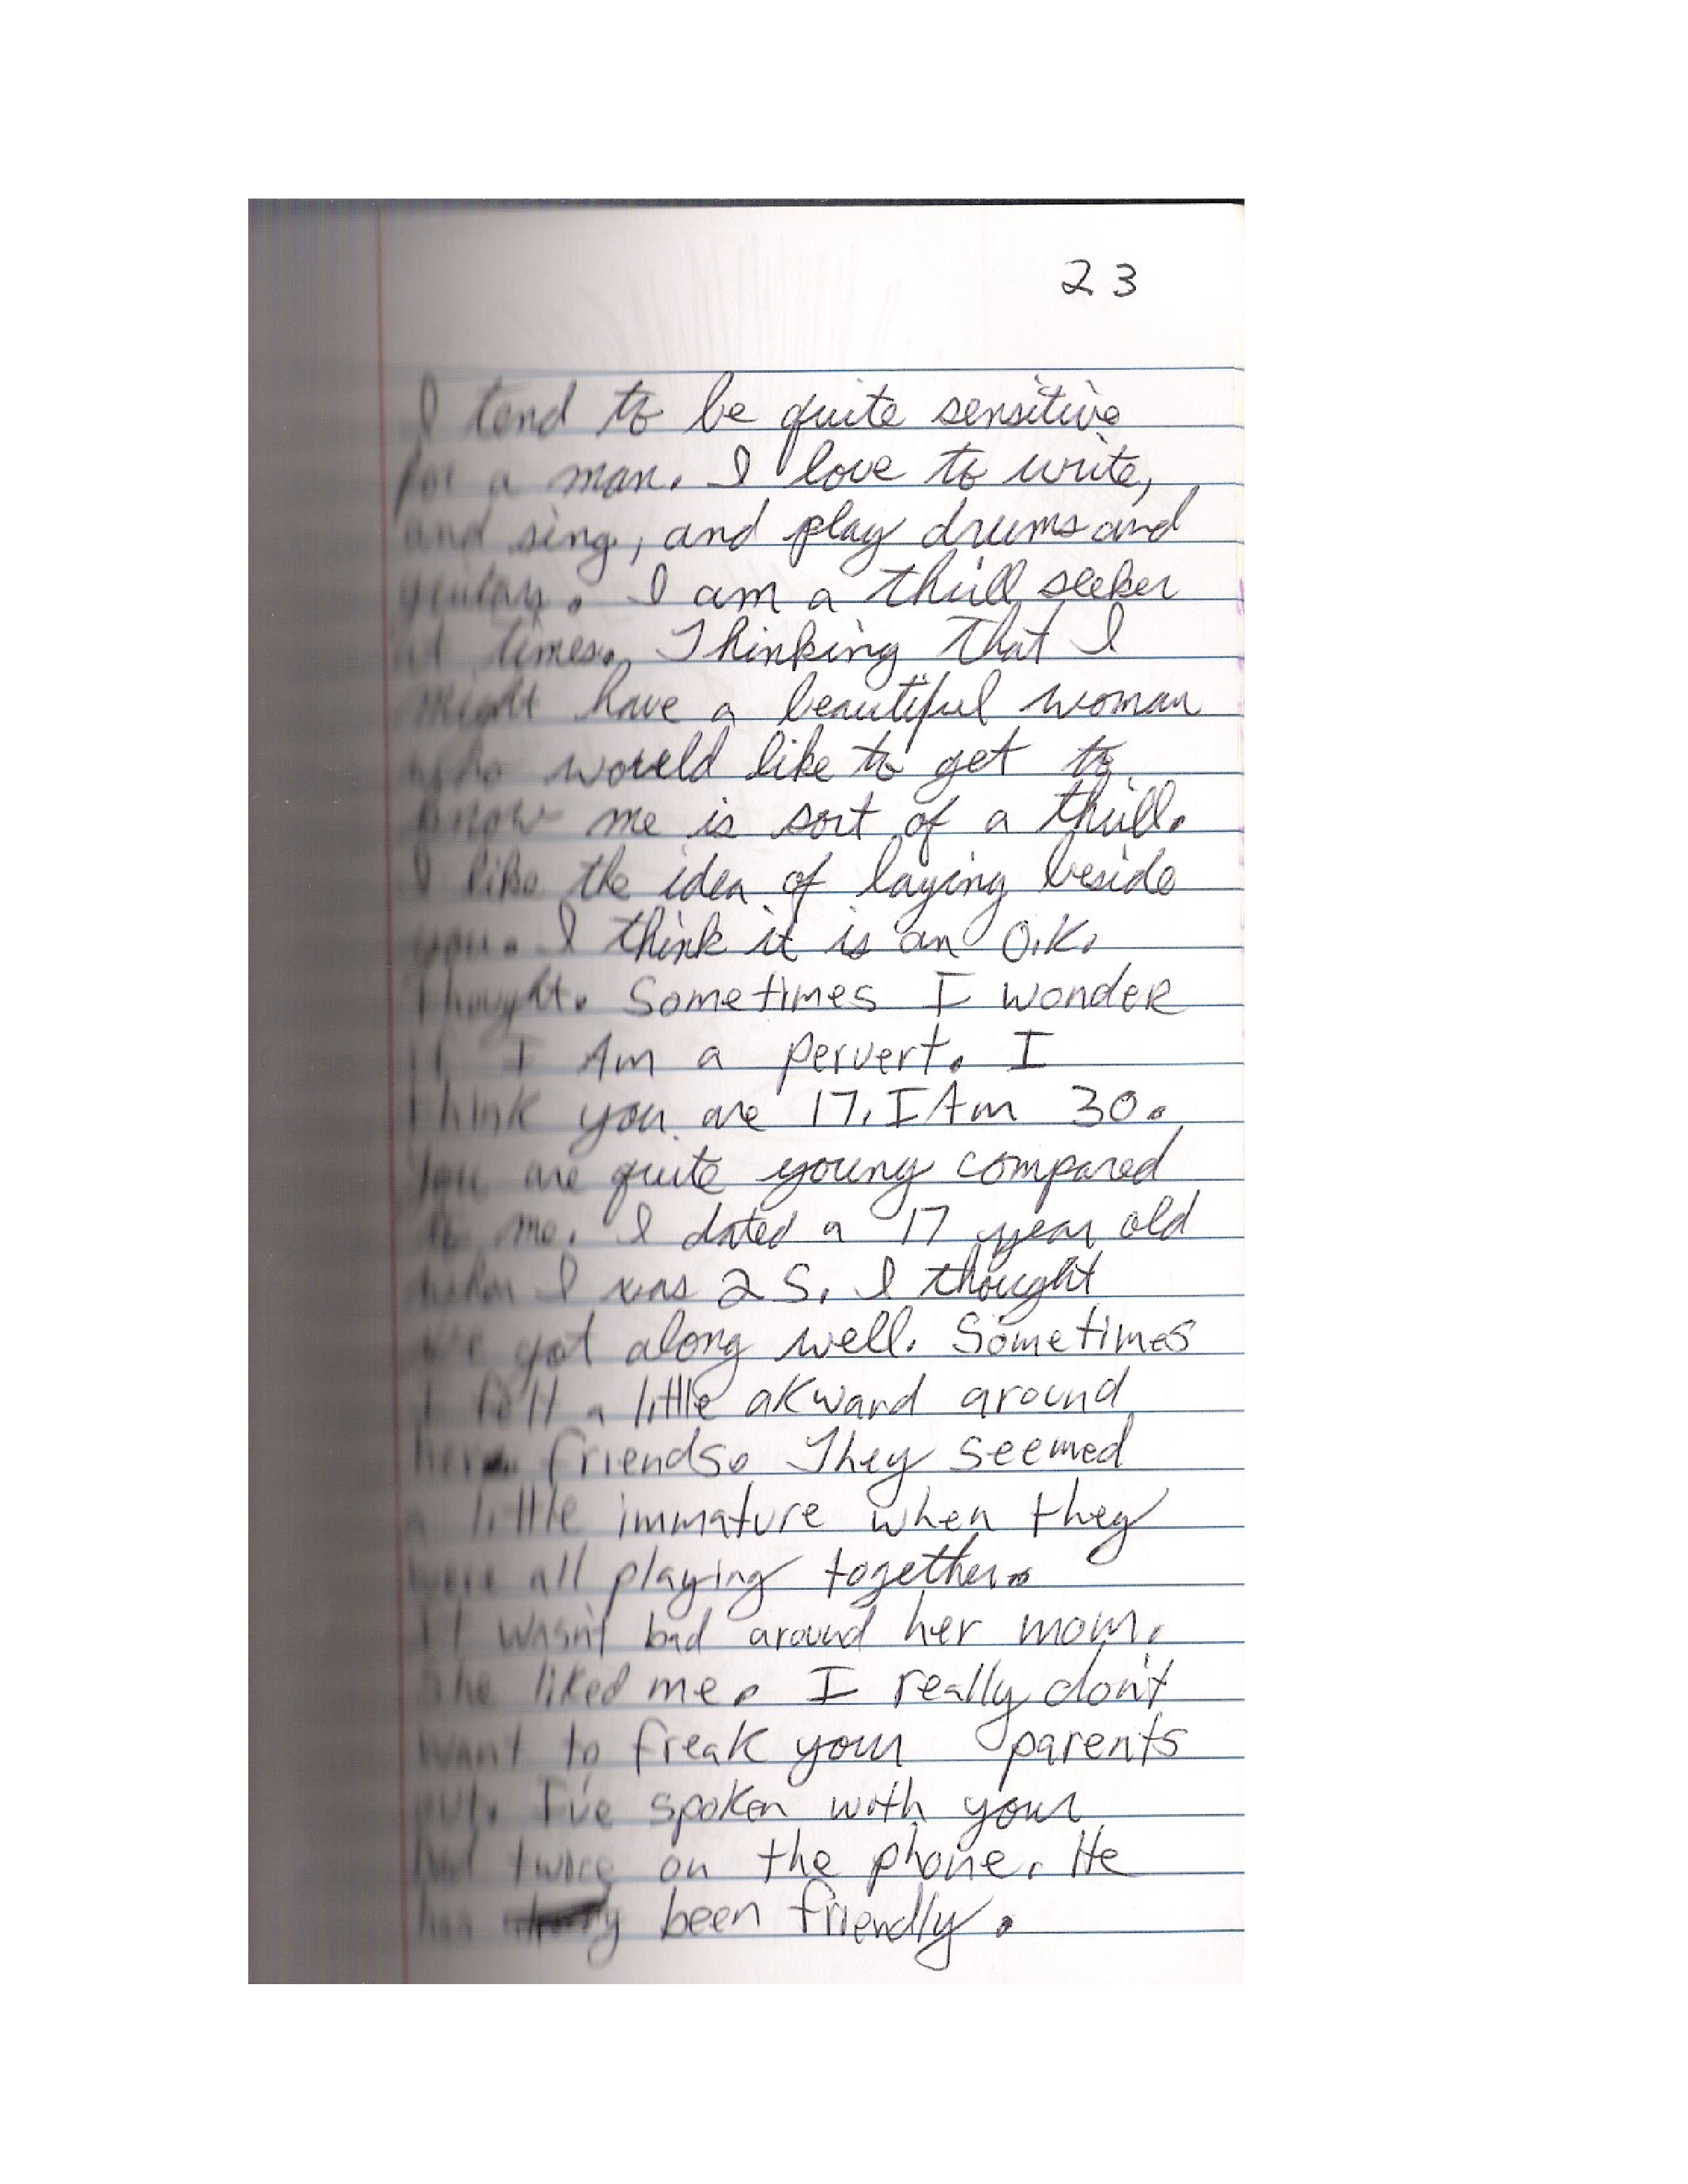 23
I tend to be quite sensitive
for a man. I love to write,
and sing, and play drums and
guitars. I am a thrill seeker
at times. Thinking that I
might have a beautiful woman
who would like to get to
know me is sort of a thrill.
I like the idea of laying beside
you. I think it is an O.K.
thought. Sometimes I wonder
if I Am a pervert. I
think you are 17. I Am 30.
You are quite young compared
to me. I dated a 17 year old
when I was 25. I thought
we got along well. Sometimes
I felt a little akward around
her friends. They seemed
a little immature when they
were all playing together.
It wasn't bad around her mom.
She liked me. I really don't
want to freak your parents
out. I've spoken with your
dad twice on the phone. He
has been friendly.